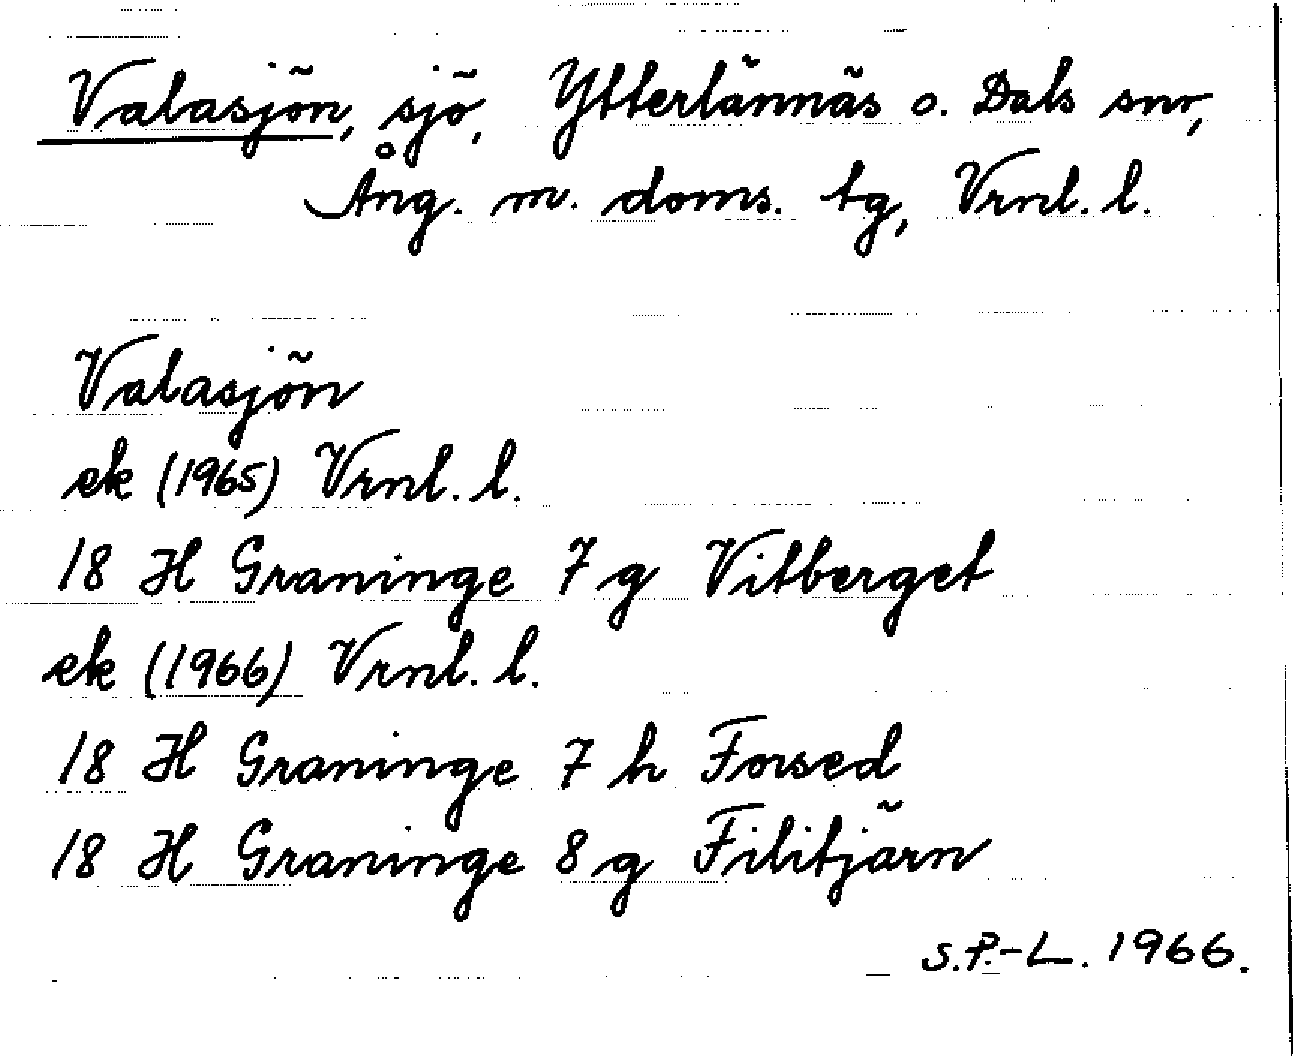 Valasjön, sjö, Ytterlännäs o. Dals snr,
Ång. m. doms. tg, Vrnl. l.
Valasjön
ek (1965) Vrnl. l.
18 H Graninge 7 g Vitberget
ek (1966) Vrnl. l.
18 H Graninge 7 h Forsed
18 H Graninge 8 g Filitjärn
S.P.-L. 1966.